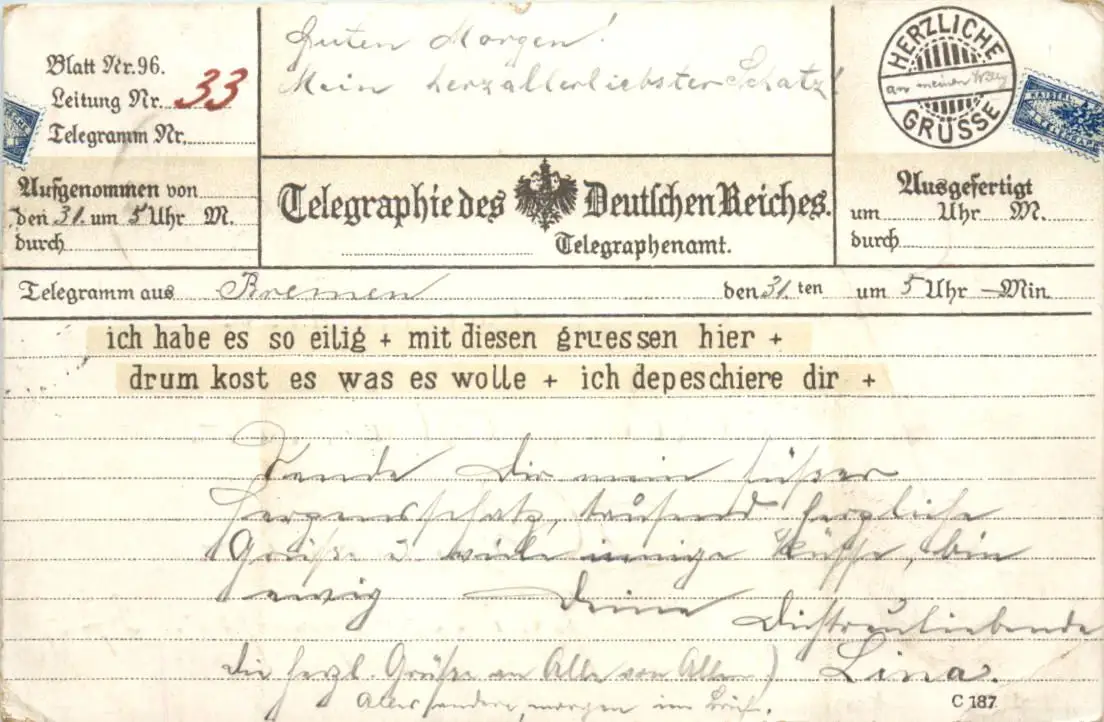 Guten Morgen!
Mein herzallerliebster Schatz!
Blatt Nr. 96.
Leitung Nr. 33
Telegramm Nr.
HERZLICHE
an meinen Willy
GRÜSSE
Aufgenommen von
den 31. um 5 Uhr M.
durch
Telegraphie des Deutschen Reiches.
Telegraphenamt.
Ausgefertigt
um Uhr M.
durch
Telegramm aus Bremen den 31. ten um 5 Uhr — Min.
ich habe es so eilig + mit diesen gruessen hier +
drum kost es was es wolle + ich depeschiere dir +
Sende Dir mein süßer
Herzensschatz, tausend herzliche
Grüße u. viele innige Küsse, bin
ewig Deine Dichtreuliebende
Die herzl. Grüße an Alle von Allen) Lina.
Alles andere morgen im Brief.
C 187